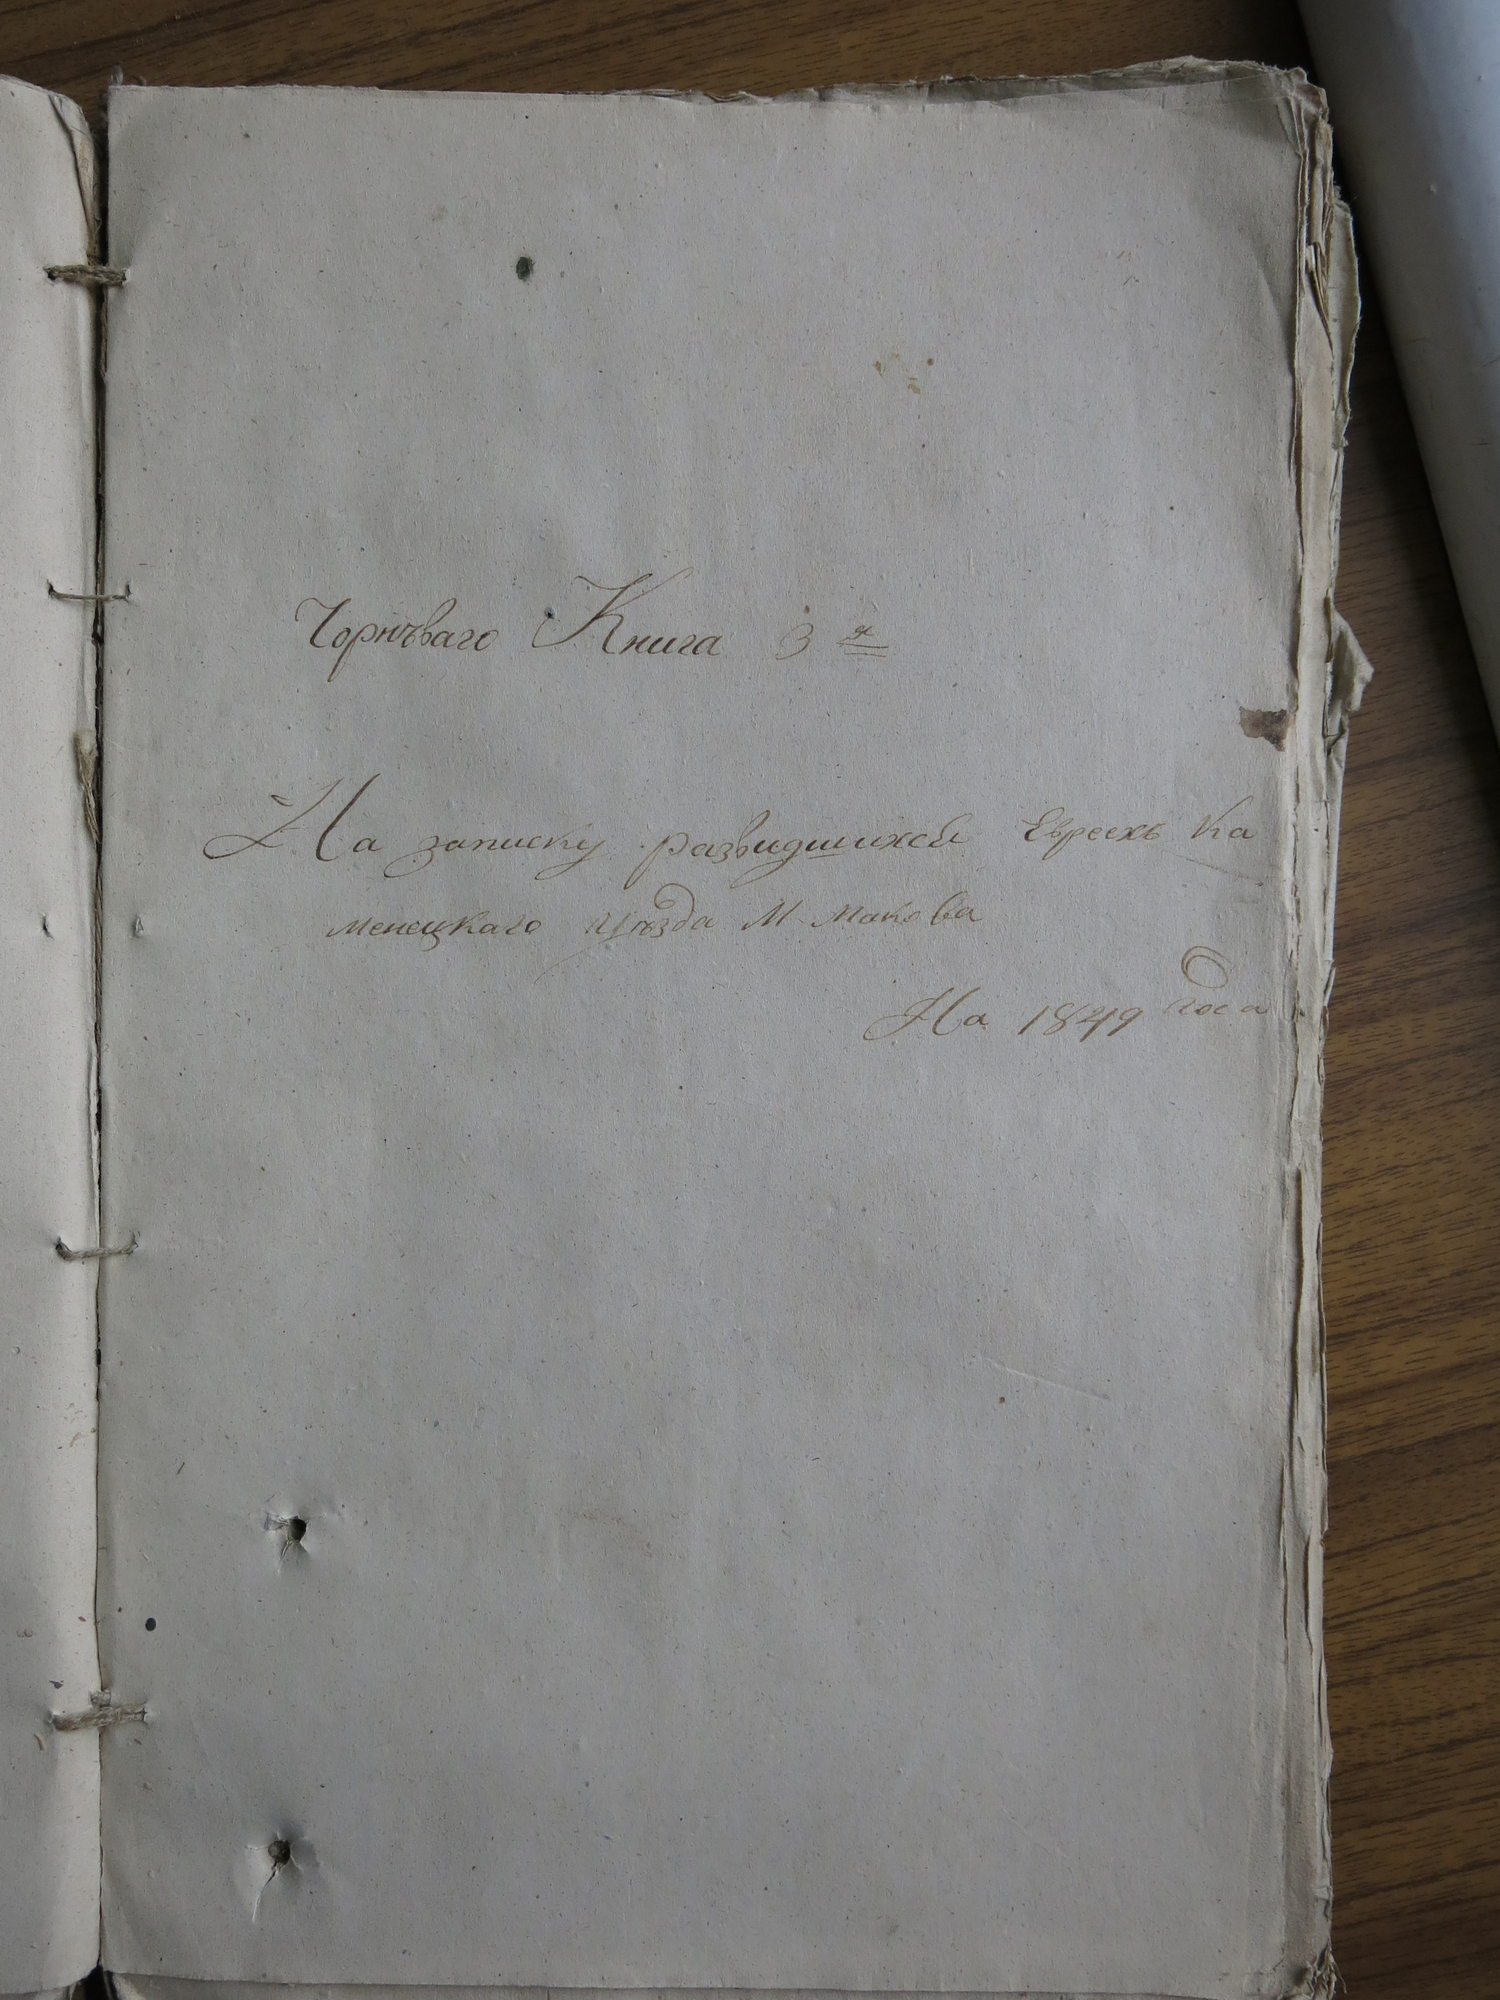 Чорнѣваго Книга 3 я
На записку развидшихся Евреехъ Ка
менецкаго Уѣзда М. Макова
На 1849 года